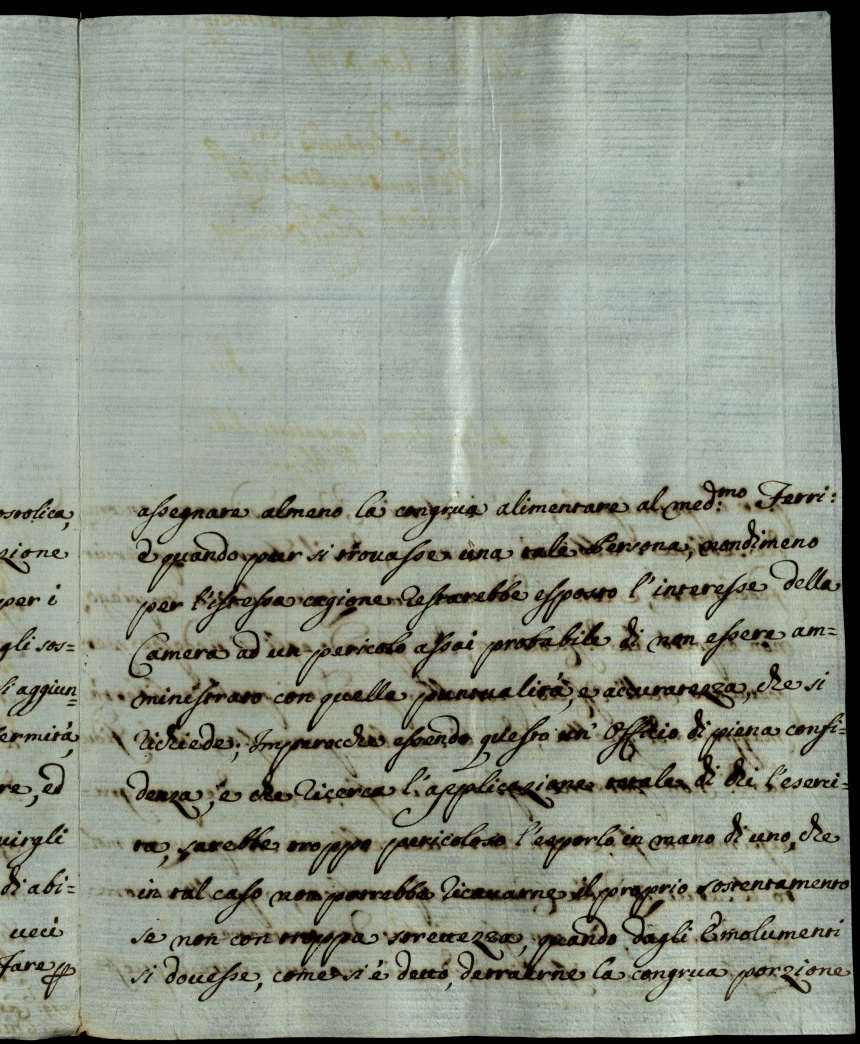 ostolica,
zione
per i
gli sos=
si aggiun=
fermità,
re, ed
uirgli
di abi=
veci
fare
assegnare almeno la congrua alimentare al med:mo Ferri:
E quando pur si trouasse una tale Persona; nondimeno
per l'istessa cagione restarebbe esposto l'interesse della
Camera ad un pericolo assai probabile di non essere am=
ministrato con quella puntualità, e accuratezza, che si
richiede; Imperocche essendo questo un' Officio di piena confi=
denza, e che ricerca l'applicazione totale di chi l'eserci=
ta, sarebbe troppo pericoloso l'esporlo in mano di uno, che
in tal caso non potrebbe ricauarne il proprio sostentamento
se non con troppa strettezza, quando dagli Emolumenti
si douesse, come si è detto, detraerne la congrua porzione